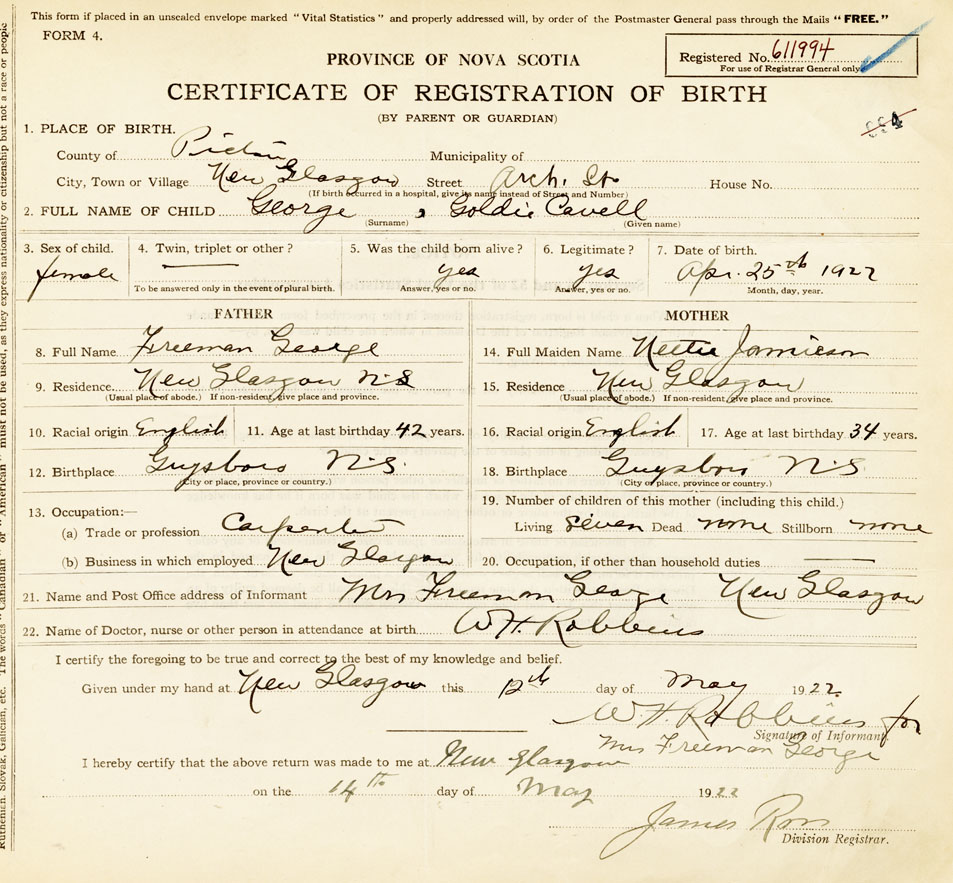 This form if placed in an unsealed envelope marked "Vital Statistics" and properly addressed will, by order of the Postmaster General pass through the Mails "FREE."
FORM 4.
Registered No. 611994
For use of Registrar General only
PROVINCE OF NOVA SCOTIA
CERTIFICATE OF REGISTRATION OF BIRTH
(BY PARENT OR GUARDIAN)
1. PLACE OF BIRTH.
County of Pictou Municipality of
City, Town or Village New Glasgow Street Arch. St House No.
(If birth occurred in a hospital, give its name instead of Street and Number)
2. FULL NAME OF CHILD George , Goldie Cavell
(Surname) (Given name)
3. Sex of child. 4. Twin, triplet or other? 5. Was the child born alive? 6. Legitimate? 7. Date of birth.
female yes yes Apr. 25th 1922
To be answered only in the event of plural birth. Answer, yes or no. Answer, yes or no. Month, day, year.
FATHER
8. Full Name Freeman George
9. Residence New Glasgow N S
(Usual place of abode.) If non-resident, give place and province.
10. Racial origin English 11. Age at last birthday 42 years.
12. Birthplace Guysboro N.S.
(City or place, province or country.)
13. Occupation:—
(a) Trade or profession Carpenter
(b) Business in which employed New Glasgow
MOTHER
14. Full Maiden Name Nettie Jamieson
15. Residence New Glasgow
(Usual place of abode.) If non-resident, give place and province.
16. Racial origin English 17. Age at last birthday 34 years.
18. Birthplace Guysboro N S
(City or place, province or country.)
19. Number of children of this mother (including this child.)
Living seven Dead none Stillborn none
20. Occupation, if other than household duties
21. Name and Post Office address of Informant Mrs Freeman George New Glasgow
22. Name of Doctor, nurse or other person in attendance at birth W H Robbins
I certify the foregoing to be true and correct to the best of my knowledge and belief.
Given under my hand at New Glasgow this 12th day of May 1922.
W. H. Robbins for
Signature of Informant.
Mrs Freeman George
I hereby certify that the above return was made to me at New Glasgow
on the 14th day of May 1922
James Ross
Division Registrar.
Ruthenian, Slovak, Galician, etc. The words "Canadian" or "American" must not be used, as they express nationality or citizenship but not a race or people